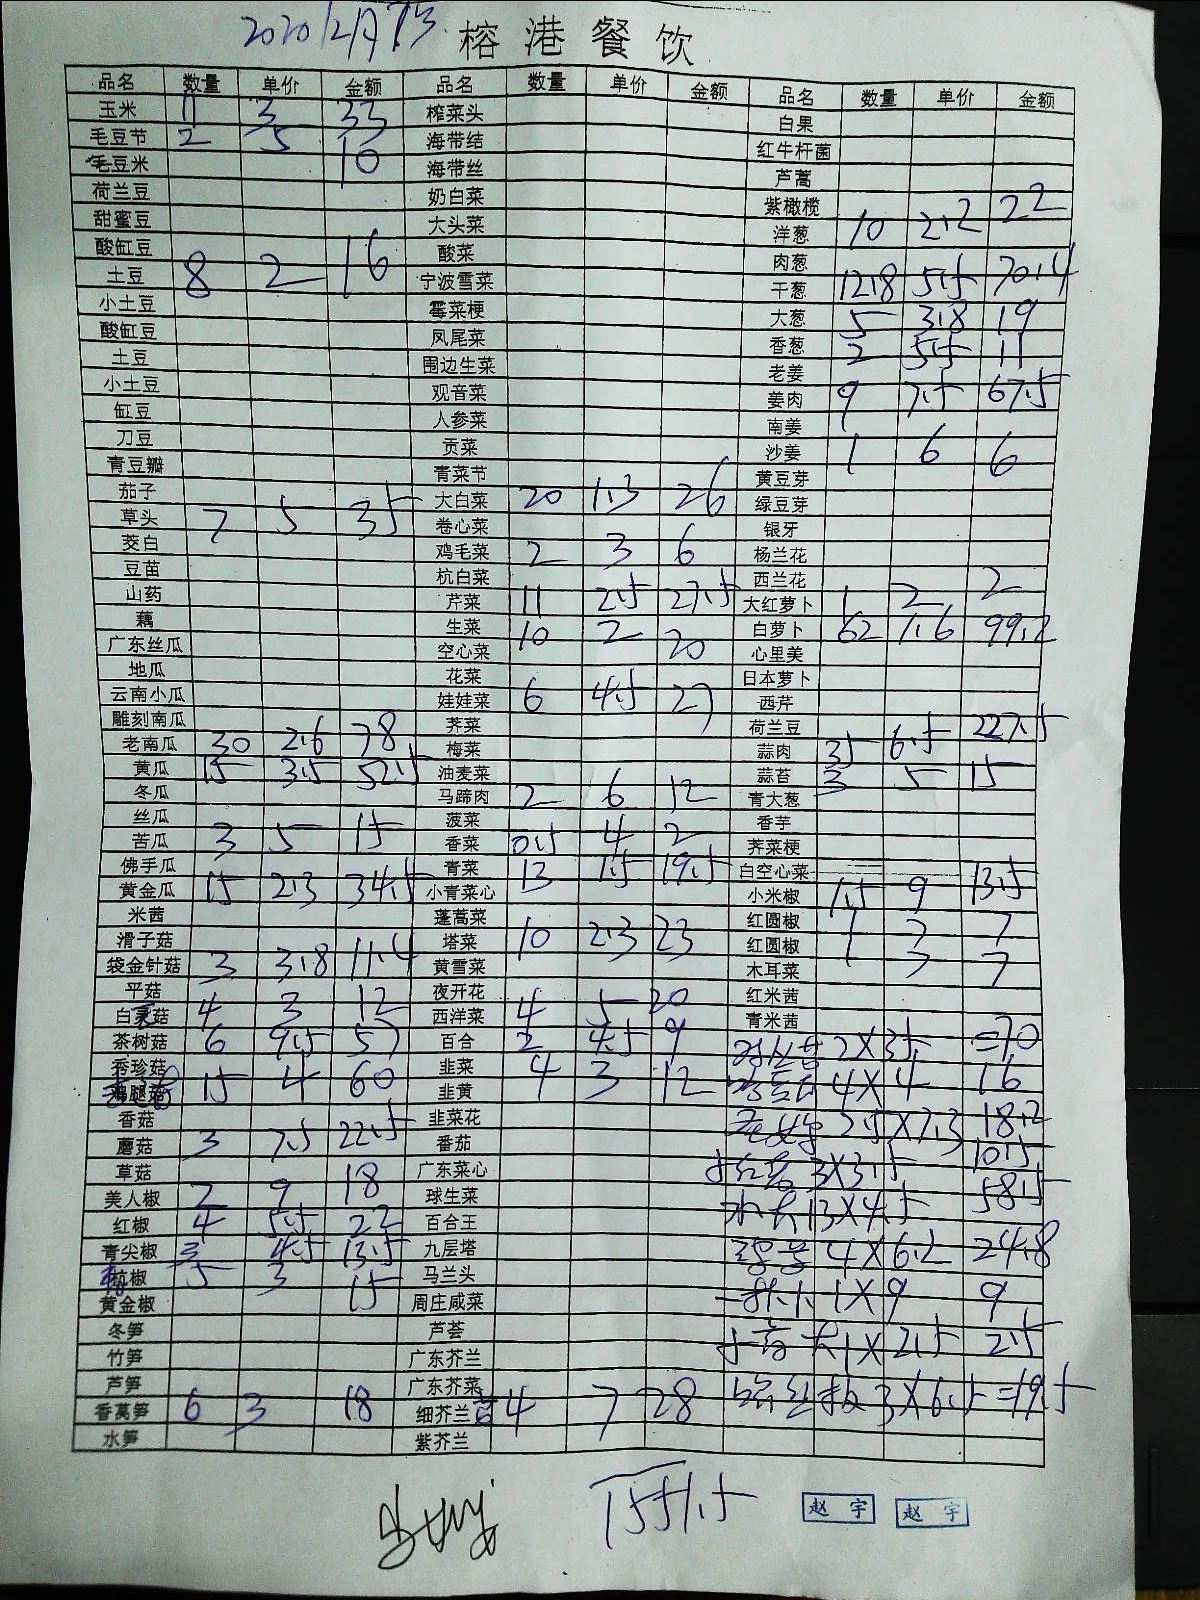 2020 12月
榕港餐饮
品名 数量 单价 金额 品名 数量 单价 金额 品名 数量 单价 金额
玉米 11 3 33 榨菜头 白果
毛豆节 2 5 10 海带结 红牛杆菌
毛豆米 海带丝 芦蒿
荷兰豆 奶白菜 紫橄榄
甜蜜豆 大头菜 洋葱 10 2.2 22
酸缸豆 酸菜 肉葱
土豆 8 2 16 宁波雪菜 干葱 12.8 5.5 70.4
小土豆 霉菜梗 大葱 5 3.8 19
酸缸豆 凤尾菜 香葱 2 5.5 11
土豆 围边生菜 老姜
小土豆 观音菜 姜肉 9 7.5 67.5
缸豆 人参菜 南姜
刀豆 贡菜 沙姜 1 6 6
青豆瓣 青菜节 黄豆芽
茄子 大白菜 20 1.3 26 绿豆芽
草头 7 5 35 卷心菜 银牙
茭白 鸡毛菜 2 3 6 杨兰花
豆苗 杭白菜 西兰花
山药 芹菜 11 2.5 27.5 大红萝卜 1 2 2
藕 生菜 10 2 20 白萝卜 62 1.6 99.2
广东丝瓜 空心菜 心里美
地瓜 花菜 日本萝卜
云南小瓜 娃娃菜 6 4.5 27 西芹
雕刻南瓜 荠菜 荷兰豆
老南瓜 30 2.6 78 梅菜 蒜肉 35 6.5 227.5
黄瓜 15 3.5 52.5 油麦菜 蒜苔 3 5 15
冬瓜 马蹄肉 2 6 12 青大葱
丝瓜 菠菜 香芋
苦瓜 3 5 15 香菜 0.5 4 2 荠菜梗
佛手瓜 青菜 13 1.5 19.5 白空心菜
黄金瓜 15 2.3 34.5 小青菜心 小米椒 1.5 9 13.5
米茜 蓬蒿菜 红圆椒 1 7 7
滑子菇 塔菜 10 2.3 23 红圆椒 1 7 7
袋金针菇 3 3.8 11.4 黄雪菜 木耳菜
平菇 夜开花 红米茜
白灵菇 4 3 12 西洋菜 4 5 20 青米茜
茶树菇 6 9.5 57 百合 2 4.5 9 2X35 =70
秀珍菇 韭菜 4X4 16
鸡腿菇 15 4 60 韭黄 4 3 12
香菇 韭菜花 2.5X7.3 18.2
蘑菇 3 7.5 22.5 番茄 10.5
草菇 广东菜心 3X3.5
美人椒 2 9 18 球生菜 58.5
红椒 4 5.5 22 百合王 13X4.5
青尖椒 3 4.5 13.5 九层塔 4X6.2 24.8
杭椒 5 3 15 马兰头
黄金椒 周庄咸菜 1X9 9
冬笋 芦荟 1X2.5 2.5
竹笋 广东芥兰
芦笋 广东芥菜 3X6.5 =19.5
香莴笋 6 3 18 细芥兰 4 7 28
水笋 紫芥兰
1551.5
赵宇 赵宇